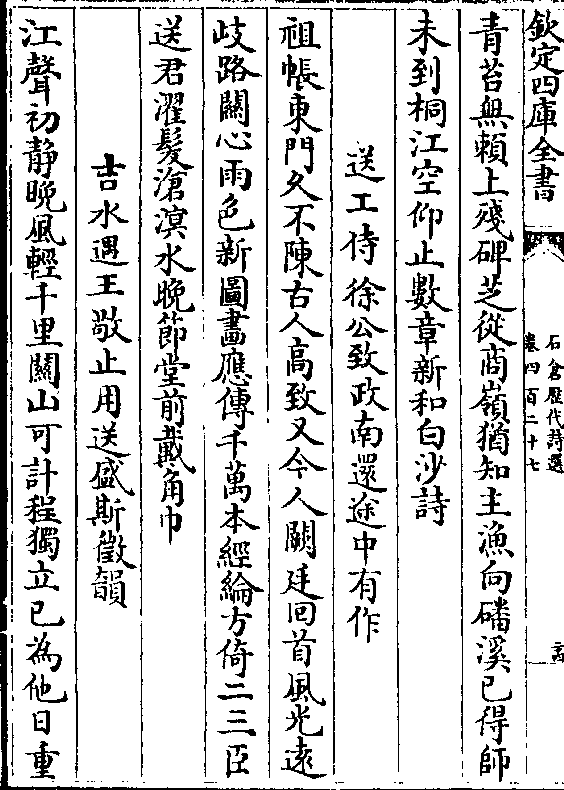 欽定四庫全書
石倉歷代詩選
卷四百二十七
青苔無賴上殘碑芝從商嶺猶知主漁向磻溪已得師
未到桐江空仰止數章新和白沙詩
送工侍徐公致政南還途中有作
祖帳東門久不陳古人高致又今人闕廷回首風光遠
歧路關心雨色新圖畫應傳千萬本經綸方倚二三臣
送君濯髮滄溟水晚節堂前戴角巾
吉水遇王敬止用送盛斯徵韻
江聲初靜晚風輕千里關山可計程獨立已為他日重